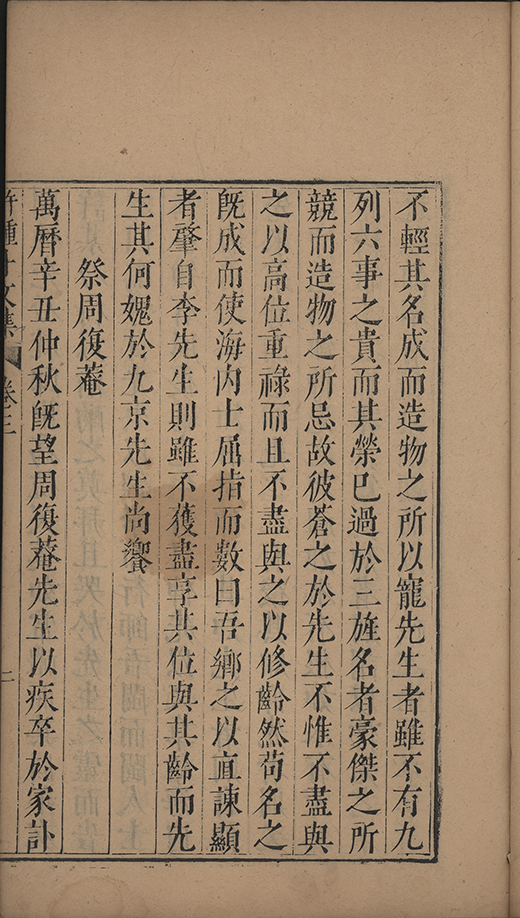 不輕其名成而造物之所以寵先生者雖不有九
列六事之貴而其榮已過於三旌名者豪傑之所
競而造物之所忌故彼蒼之於先生不惟不盡與
之以高位重祿而且不盡與之以修齡然苟名之
旣成而使海內士屈指而數曰吾鄉之以直諫顯
者肇自李先生則雖不獲盡享其位與其齡而先
生其何媿於九京先生尚饗
祭周復菴
萬曆辛丑仲秋旣望周復菴先生以疾卒於家訃
許鍾斗文集 卷三 二